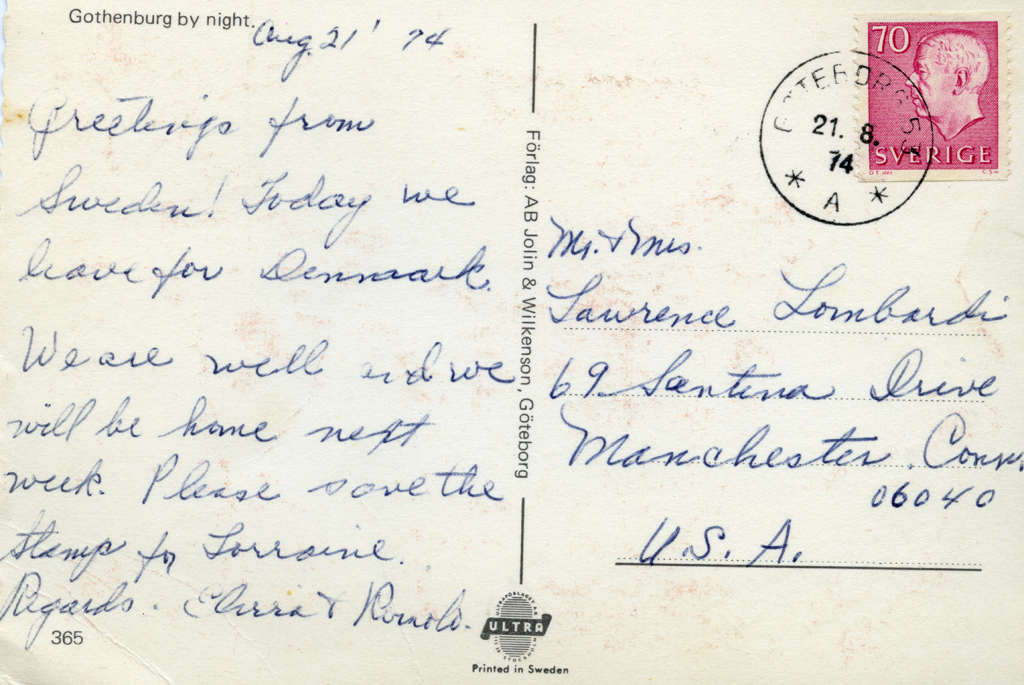 Gothenburg by night.
Aug. 21' 74
Greetings from
Sweden! Today we
leave for Denmark.
We are well and we
will be home next
week. Please save the
stamp for Lorraine.
Regards. & Romolo.
365
Förlag: AB Jolin & Wilkenson, Göteborg
ULTRA
Printed in Sweden
70
SVERIGE
GÖTEBORG 53
21. 8.
74
* A *
Mr. & Mrs.
Lawrence Lombardi
69 Santina Drive
Manchester, Conn.
06040
U.S.A.